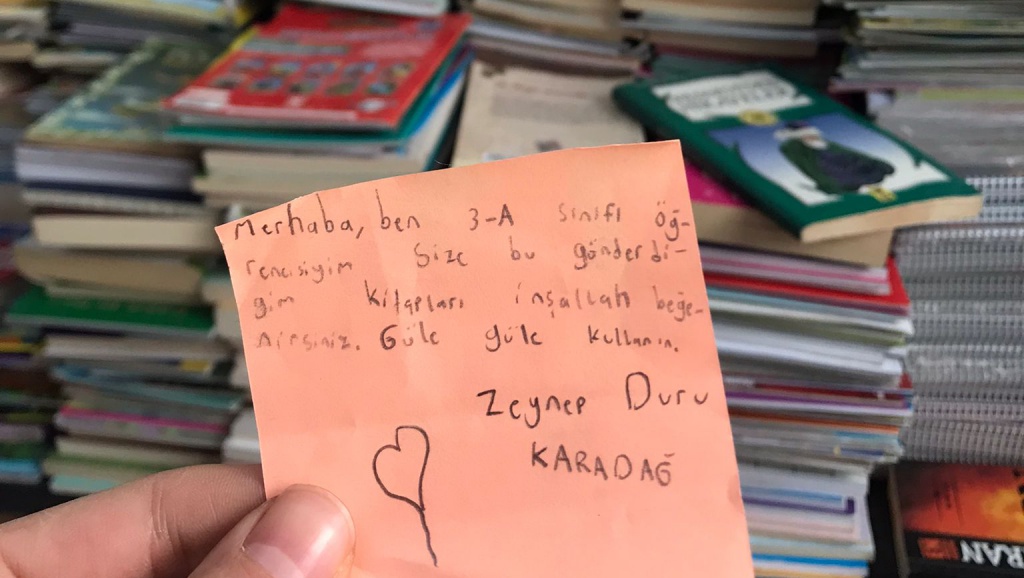 Merhaba, ben 3-A sınıfı öğ-
rencisiyim Size bu gönderdi-
ğim kitapları inşallah beğe-
nirsiniz. Güle güle kullanın.
Zeynep Duru
KARADAĞ